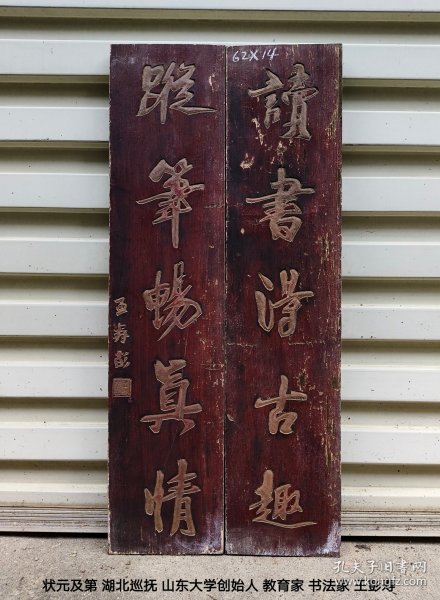 62X14
讀書得古趣
蹤筆暢眞情
王壽彭
孔夫子旧书网
状元及第 湖北巡抚 山东大学创始人 教育家 书法家 王彭寿